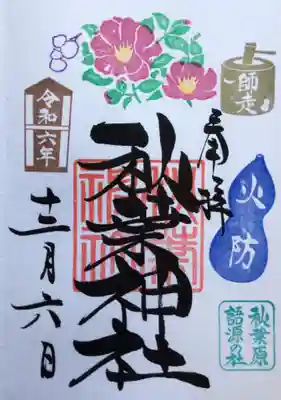 奉拝
師走
火防
秋葉神社
秋葉神社
令和六年
十二月六日
秋葉原
語源の社